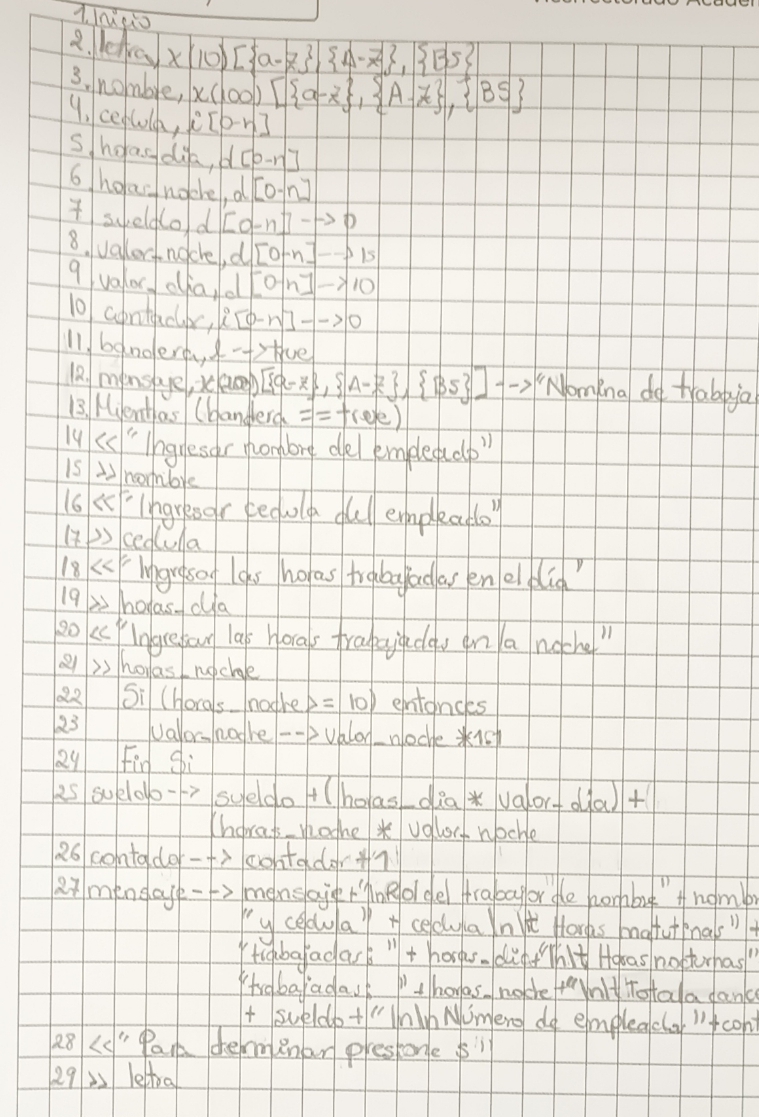 1. Inicio
2. letra, x(10) [{a-z}, {A-Z}, {BS}
3. nombre, x(100) [{a-z}, {A-Z}, {BS}
4. cedula, i [0-n]
5. horas_dia, d [0-n]
6 horas_noche, d [0-n]
7 sueldo, d [0-n] --> 0
8. valor_noche, d [0-n] --> 15
9 valor_dia, d [0-n] --> 10
10 contador, i [0-n] --> 0
11. bandera, l --> true
12. mensaje, x(200) [{a-z}, {A-Z}, {BS}] --> "Nomina de trabaja
13. Mientras (bandera == true)
14 << "Ingresar nombre del empleado"
15 >> nombre
16 << "Ingresar cedula del empleado"
17 >> cedula
18 << "Ingresar las horas trabajadas en el día"
19 >> horas_dia
20 << "Ingresar las horas trabajadas en la noche"
21 >> horas_noche
22 Si (horas_noche >= 10) entonces
23 valor_noche --> valor_noche *
24 Fin Si
25 sueldo --> sueldo + (horas_dia * valor_dia) +
(horas_noche * valor_noche
26 contador --> contador + 1
27 mensaje --> mensaje + "\nRol del trabajor de nombre" + nombr
"y cédula" + cedula \n\t Horas matutinas" +
"trabajadas: " + horas_dia + "\n\t Horas nocturnas"
"trabajadas: " + horas_noche + "\n\t Total a cance
+ sueldo + "\n\n Número de empleados" + cont
28 << "Para terminar presione s"
29 >> letra